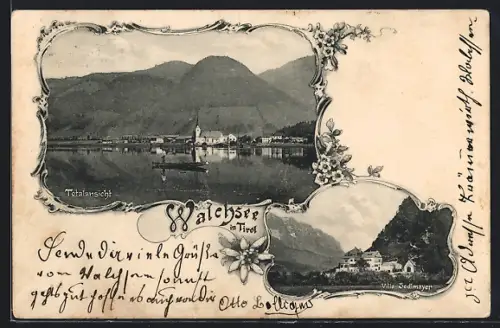 Totalansicht
Walchsee
in Tirol
Villa Sedlmayer
Sende dir viele Grüße
von Walchsee sonst
gehts gut hoffe es auch von dir
Otto
Adresse